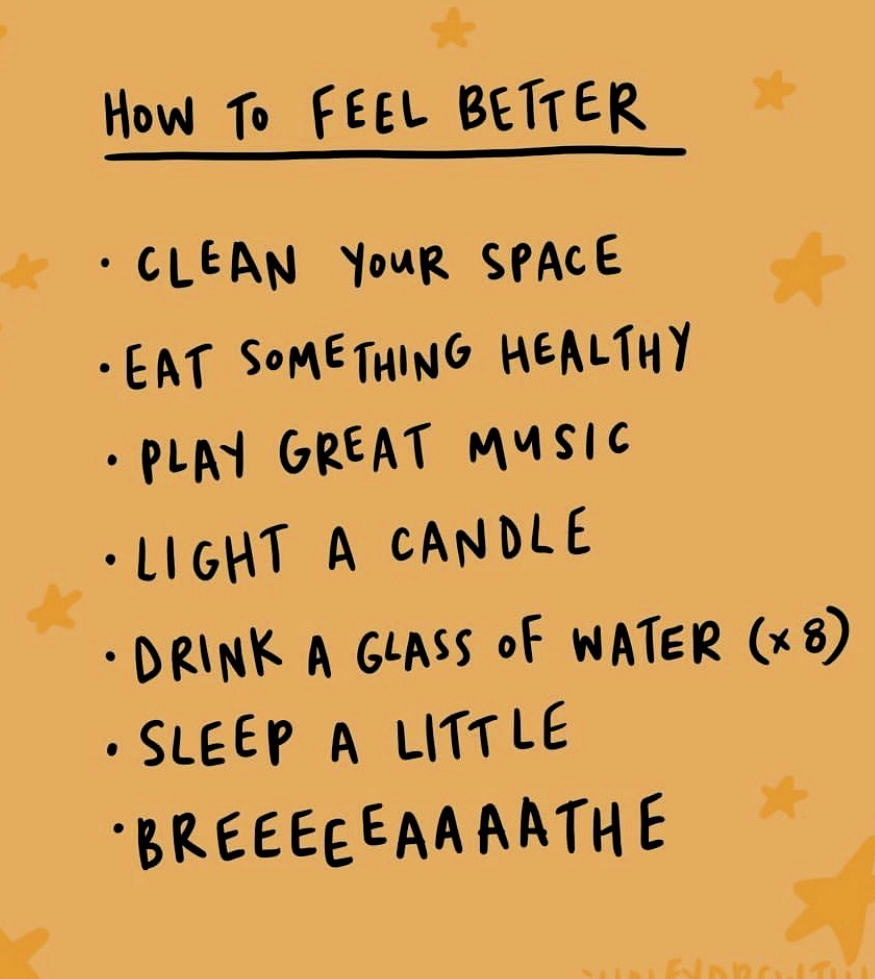 HOW TO FEEL BETTER
· CLEAN YOUR SPACE
· EAT SOMETHING HEALTHY
· PLAY GREAT MUSIC
· LIGHT A CANDLE
· DRINK A GLASS OF WATER (x 8)
· SLEEP A LITTLE
· BREEEEEAAAATHE